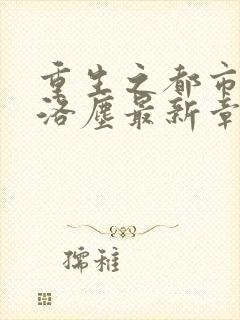 重生之都市
洛尘最新章
孺稚